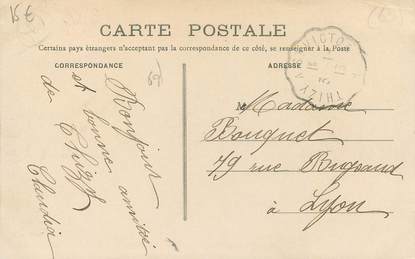 15 €
CARTE POSTALE
Certains pays étrangers n'acceptent pas la correspondance de ce côté, se renseigner à la Poste
CORRESPONDANCE
Bonjour
et bonne amitié
de Thizy
Claudia
ADRESSE
THIZY
M Madame
Bouquet
49 rue Bugeaud
à Lyon